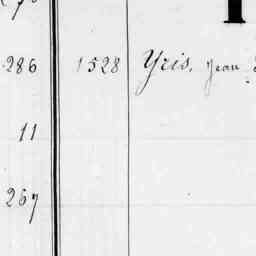 286 1528 Yris, Jean
11
267